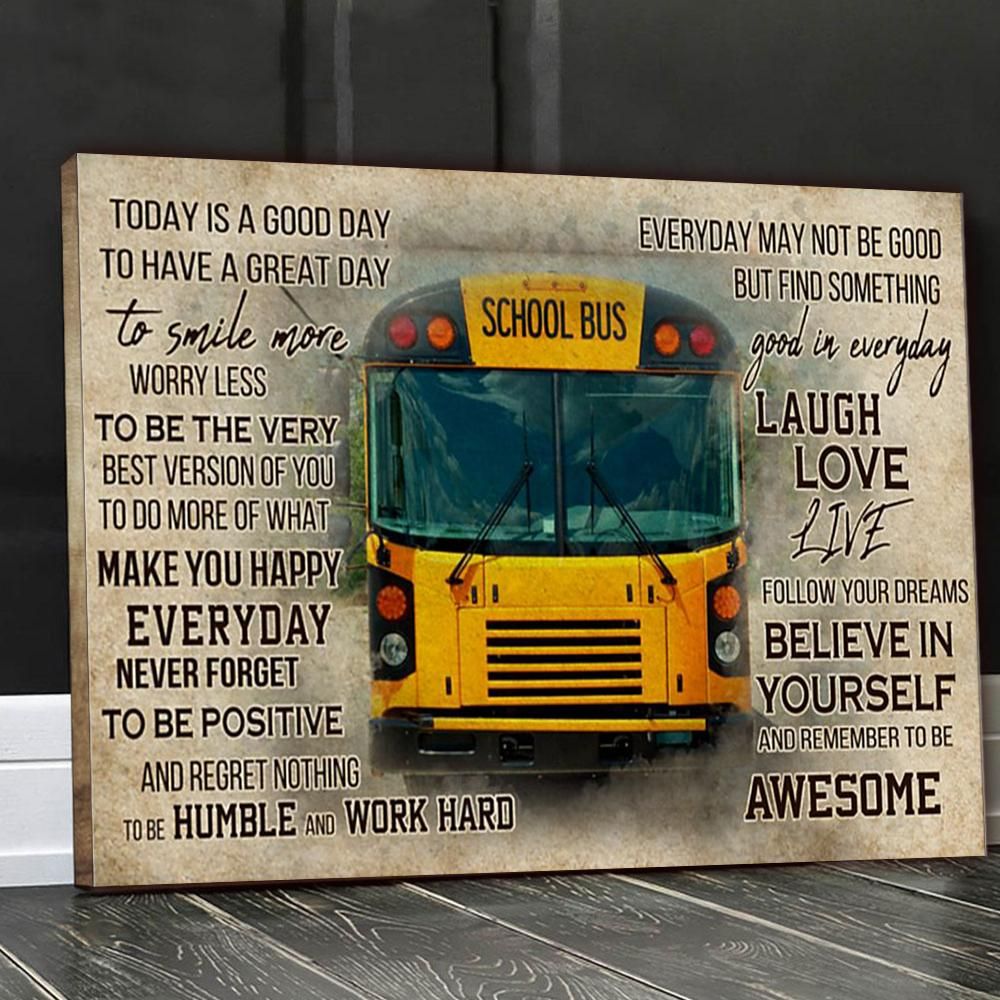 TODAY IS A GOOD DAY
TO HAVE A GREAT DAY
to smile more
WORRY LESS
TO BE THE VERY
BEST VERSION OF YOU
TO DO MORE OF WHAT
MAKE YOU HAPPY
EVERYDAY
NEVER FORGET
TO BE POSITIVE
AND REGRET NOTHING
TO BE HUMBLE AND WORK HARD
SCHOOL BUS
EVERYDAY MAY NOT BE GOOD
BUT FIND SOMETHING
good in everyday
LAUGH
LOVE
LIVE
FOLLOW YOUR DREAMS
BELIEVE IN
YOURSELF
AND REMEMBER TO BE
AWESOME